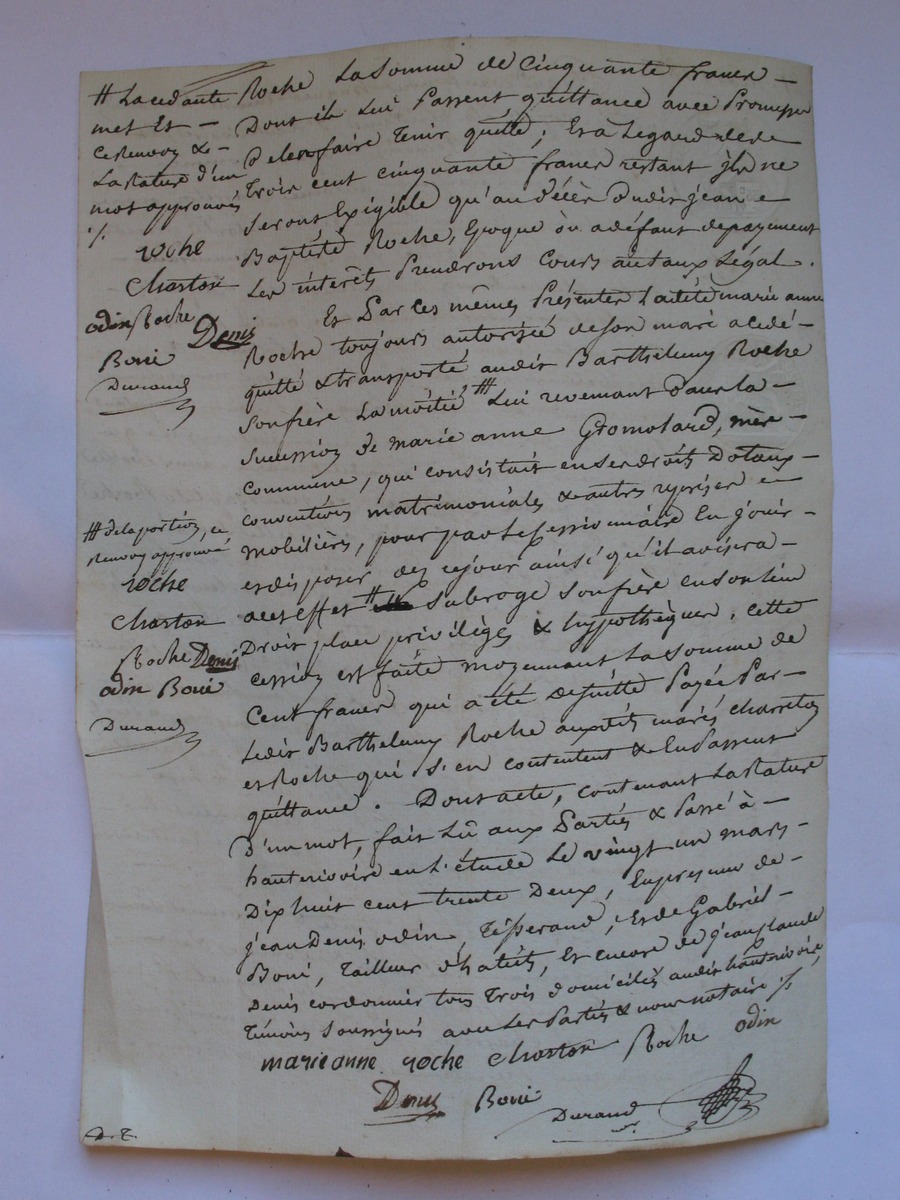 Roche La somme de cinquante francs —
Dont ils Lui Passent quittance avec Promesse
De l'en faire Tenir quitte; Et à Legard de
Trois cent cinquante francs restant ils ne
seront Exigible qu'au décès Dudit jean
Baptiste Roche, Epoque où a défaut de payement
Les intérêts Prendrons Cours au taux Légal.
Et Par Ces mêmes Présentes Ladite marie anne
Roche toujours autorisée de son mari a cédé —
quitté & transporté audit Barthelemy Roche
son frère La moitié # Lui revenant Dans La —
succession De marie anne Gromolard, mère —
commune, qui consistait en ses droits Dotaux —
conventions matrimoniales & autres reprises
mobilières, pour par Le Cessionnaire En jouir —
et disposer des ce jour ainsi qu'il avisera —
à cet effet # subroge son frère en son Lieu
Droit place privilèges & hypothèques. cette
cession est faite moyennant La somme de
Cent francs qui a été de suitte Payée Par —
Ledit Barthelemy Roche auxdits mariés charreton
et Roche qui s'en contentent & En Passent
quittance. Dont acte, contenant La Rature
D'un mot, fait Lû aux Parties & Passé à —
hauterivoire en L'étude Le vingt un mars —
Dix huit cent trente Deux, En presence de —
jean Denis odin, Tisserand, Et de Gabriel —
Boni, Tailleur d'habits, Et encore de jean Claude
Denis cordonnier tous Trois domiciliés audit hauterivoire,
Témoins soussignés avec Les Parties & nous notaire ./.
marie anne roche Charton Roche odin
Denis Boni
Durand
# La cedante
met Et —
Ce Renvoy &
La Rature d'un
mot approuvés
./.
roche
Charton
odin Roche
Denis
Boni
Durand
# de la portion, ce
Renvoy approuvé
roche
Charton
Roche Denis
odin Boni
Durand
D. T.